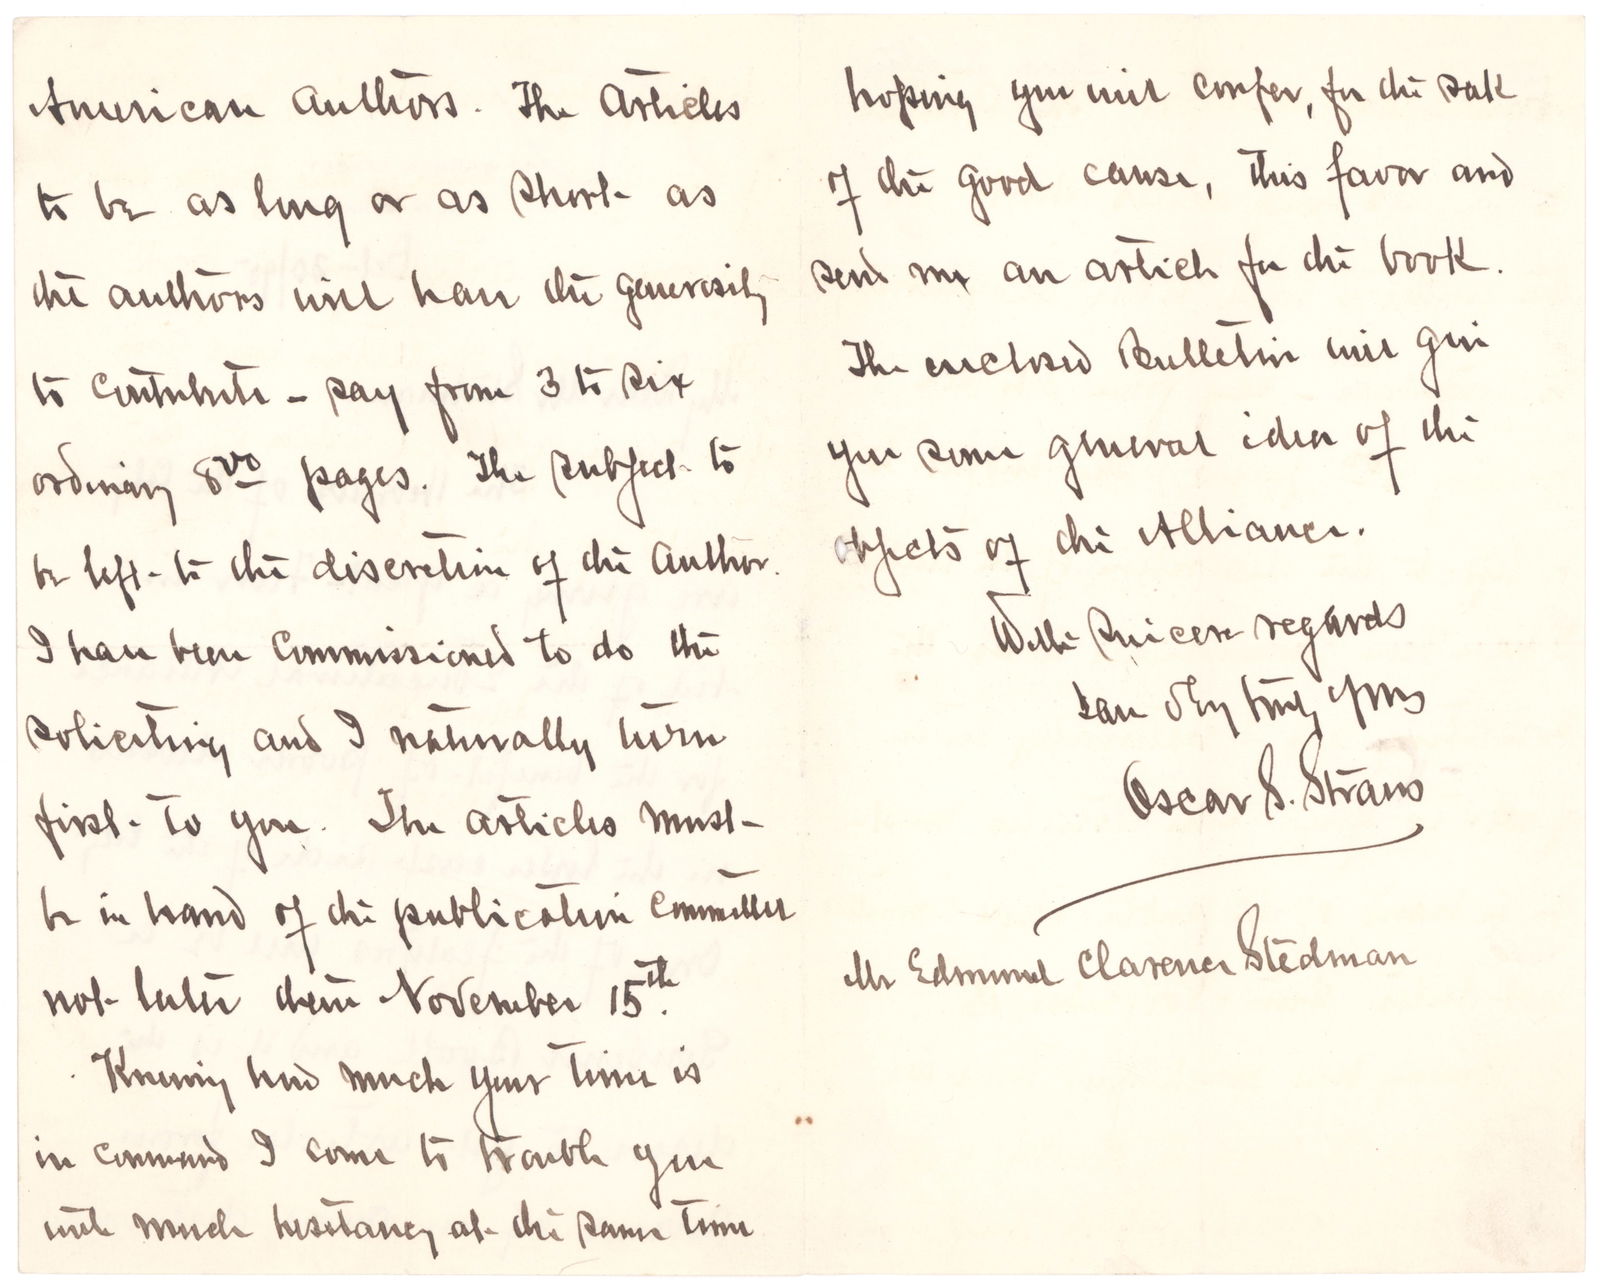 American Authors. The Articles
to be as long or as short as
the authors will have the generosity
to contribute – say from 3 to six
ordinary 8vo pages. The subject to
be left to the discretion of the Author.
I have been commissioned to do the
soliciting and I naturally turn
first to you. The articles must
be in hand of the publication committee
not later than November 15th.
Knowing how much your time is
in command I come to trouble you
with much hesitancy at the same time
hoping you will confer, for the sake
of the good cause, this favor and
send me an article for the book.
The enclosed Bulletin will give
you some general idea of the
objects of the Alliance.
With sincere regards
I am Very truly yours
Oscar S. Straus
Mr Edmund Clarence Stedman